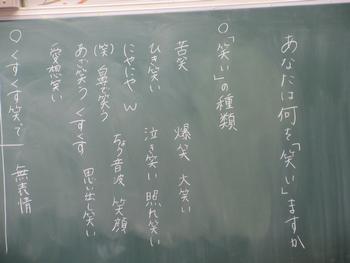 あなたは何を「笑い」ますか
○「笑い」の種類
苦笑　爆笑　大笑い
ひき笑い　泣き笑い　照れ笑い
にやにや　w　ちょう音波　笑顔
(笑)　鼻で笑う
あざ笑う　くすくす　思い出し笑い
愛想笑い
○くすくす笑って　無表情